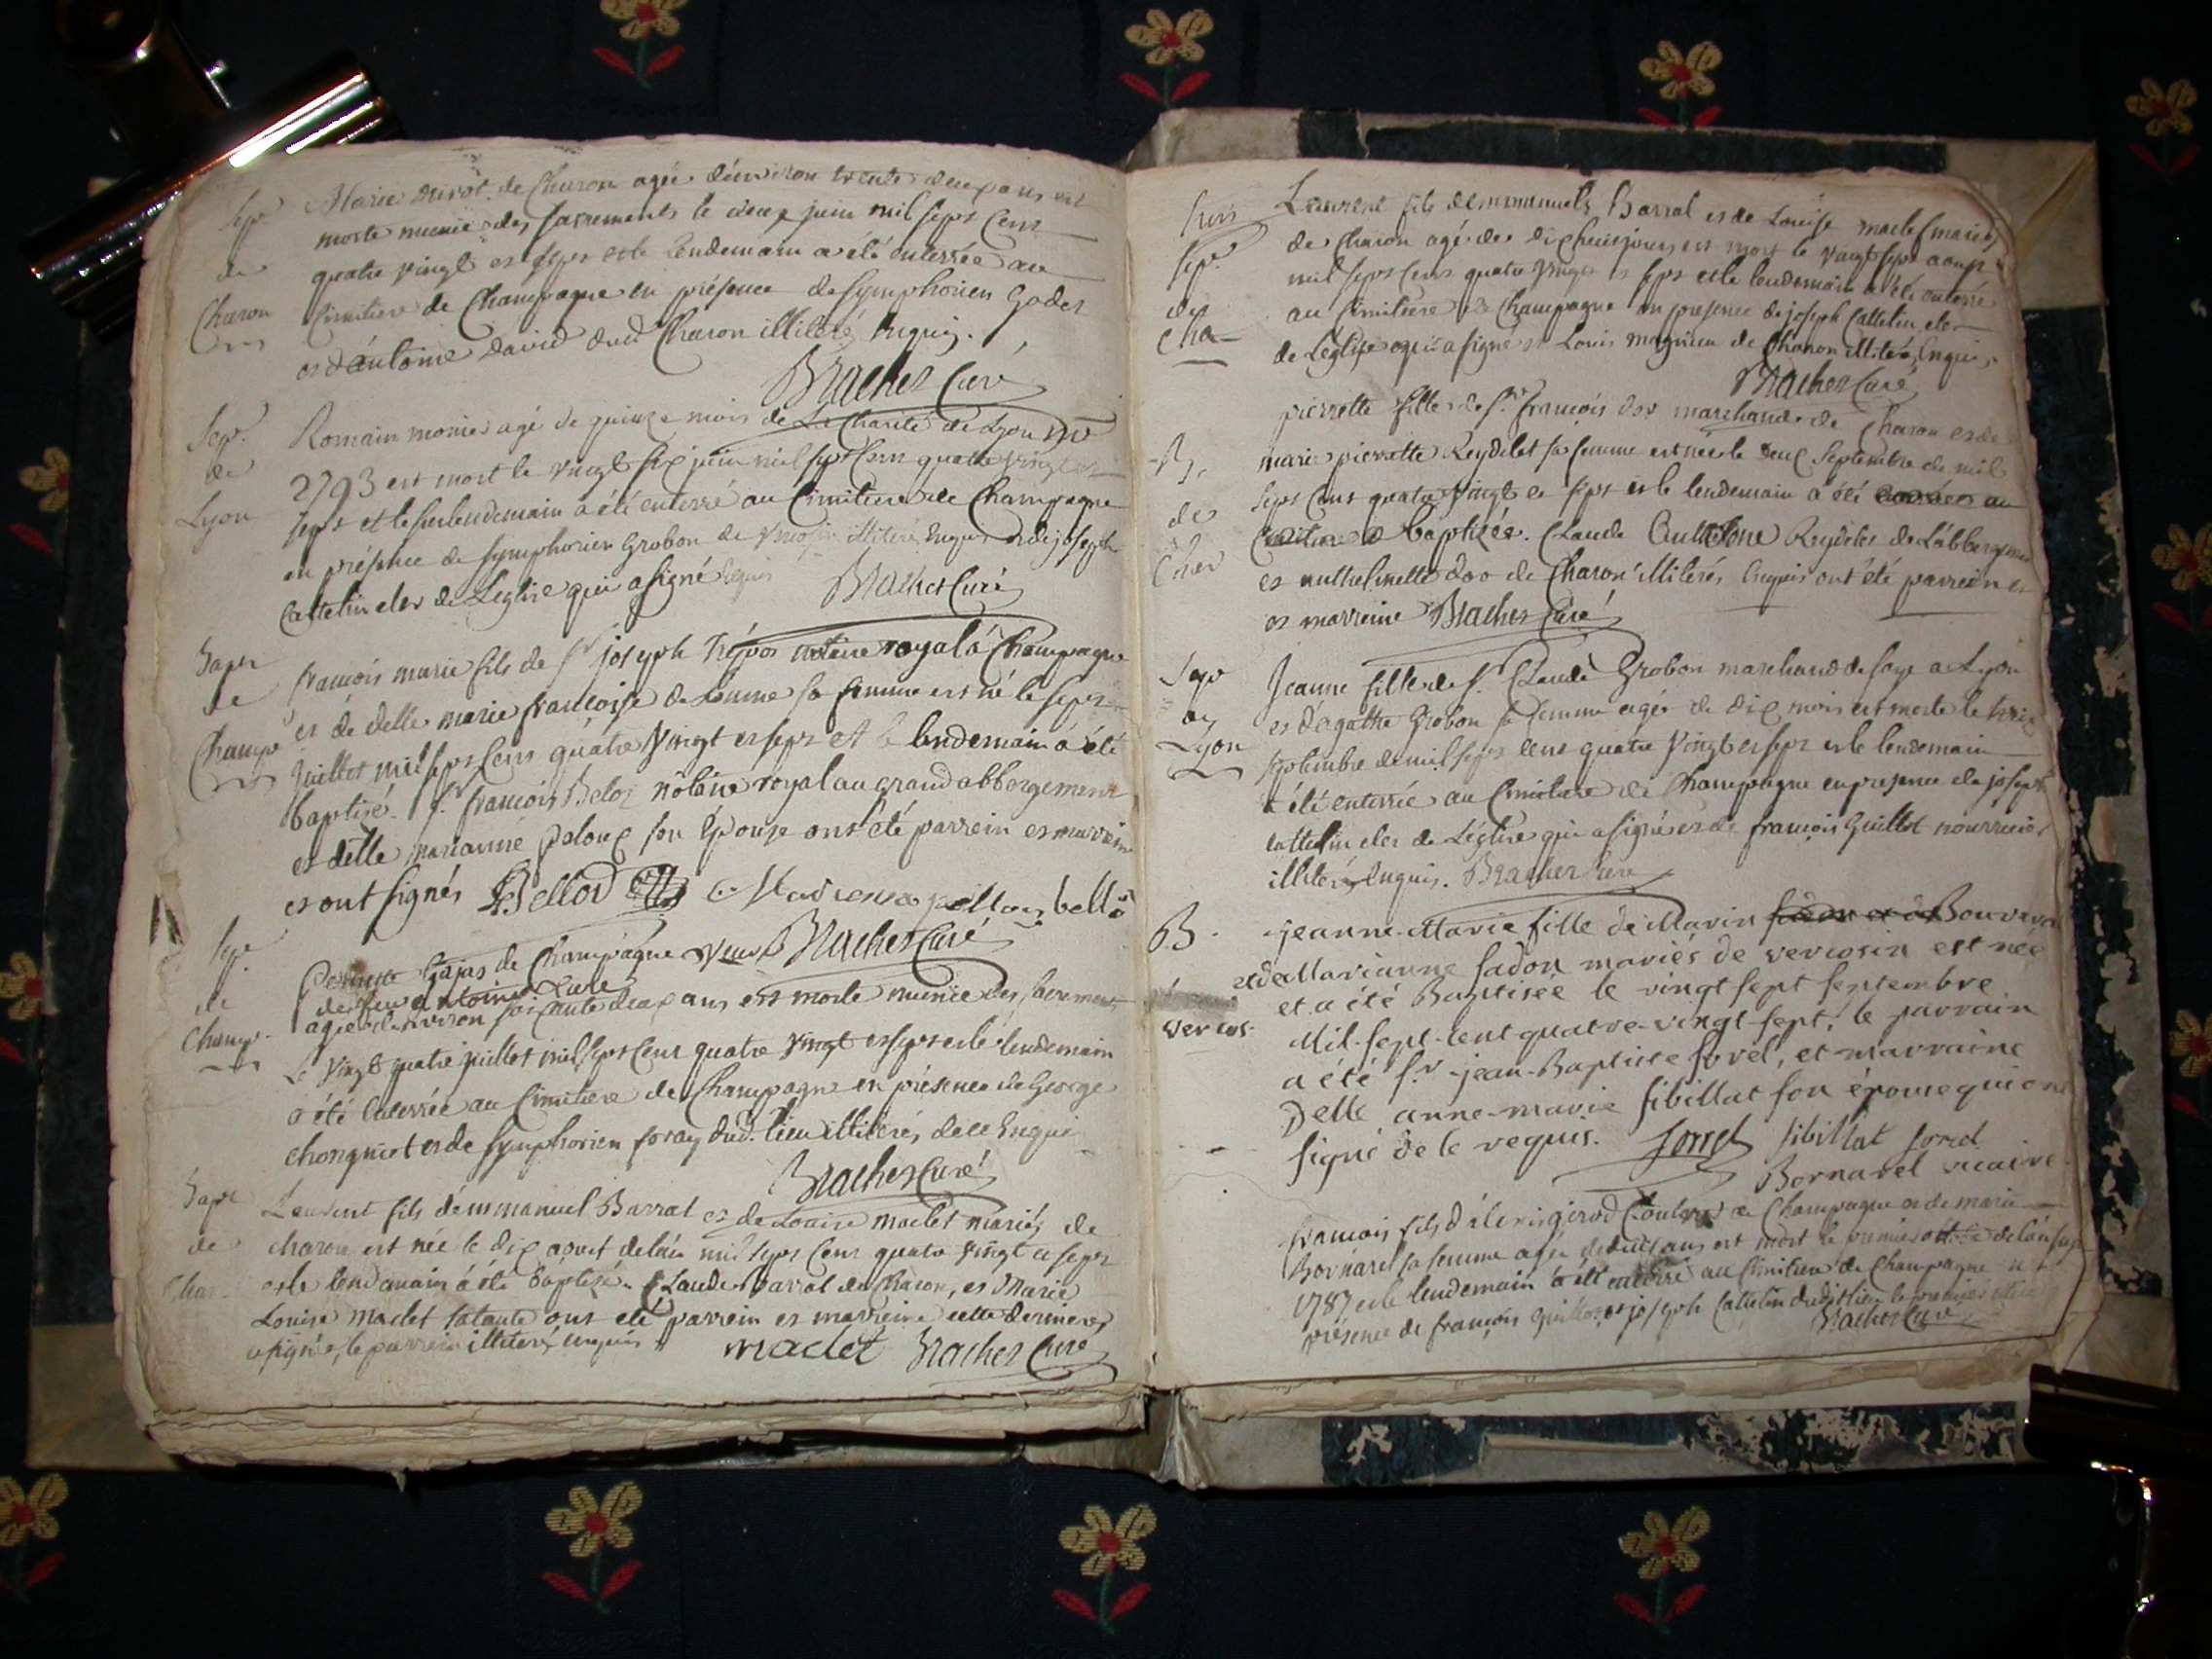 Sepe
de
Charon
Marie de Charon agée d'environ trente deux ans est
morte munie des sacrements le deux juin mil sept cent
quatre vingt et sept et le lendemain a été enterrée au
Cimitiere de Champagne en présence de Symphorien Godet
et d'antoine david dud Charon illiteré Enquis.
Brachet Curé
Sepe
de
Lyon
Romain monier agé de quinze mois de La Charité de Lyon
2793 est mort le vingt six juin mil sept cent quatre vingt et
sept et le surlendemain a été enterré au Cimitiere de Champagne
en présence de Symphorien Grobon de illiteré Enquis et de joseph
Cattelin clerc de Leglise qui a signé
Brachet Curé
Bapt
de
Champe
françois marie fils de Sr joseph notaire royal à Champagne
et de delle marie françoise de sa femme est né le sept
juillet mil sept cent quatre vingt et sept et le lendemain a été
baptisé. Sr françois Belod notaire royal au grand abbergement
et delle marianne son Epouse ont été parrein et marreine
et ont signés Bellod
Brachet Curé
Sepe
de
Champ.
Gajas de Champagne veuve
de feu antoine
agée d'environ soixante deux ans est morte munie des sacrements
Le vingt quatre juillet mil sept cent quatre vingt et sept et le lendemain
a été enterrée au Cimitiere de Champagne en présence de George
et de Symphorien foray dud. lieu illiterés de ce Enquis
Brachet Curé
Bapt
de
Char.
Laurent fils d'emmanuel Barrat et de Louise maclet mariés de
charon est née le dix aout de l'an mil sept cent quatre vingt et sept
et le lendemain a été baptisé. Claude Barrat de Charon, et Marie
Louise Maclet sa tante ont été parrein et marreine cette derniere
a signé, le parrein illiteré enquis maclet Brachet Curé
Sepe
de
Cha
Laurent fils d'emmanuel Barrat et de Louise maclet mariés
de Charon agé de dix huit jours est mort le vingt sept aout
mil sept cent quatre vingt et sept et le lendemain a été enterré
au Cimitiere de Champagne en présence de joseph Cattelin clerc
de Leglise qui a signé et Louis de Charon illiteré Enquis
Brachet Curé
B.
de
Char
pierrette fille de Sr françois marchand de Charon et de
marie pierrette Reydelet sa femme est née le deux Septembre de mil
sept cent quatre vingt et sept et le lendemain a été
baptizée. Claude Reydelet de L'abbergement
et de Charon illiterés Enquis ont été parrein
et marreine Brachet Curé
Sepe
de
Lyon
Jeanne fille de Sr Claude Grobon marchand de soye a Lyon
et d'agathe Grobon sa femme agée de dix mois est morte le treize
septembre de mil sept cent quatre vingt et sept et le lendemain
a été enterrée au Cimitiere de Champagne en présence de joseph
cattelin clerc de Léglise qui a signé et de françois Guillot nourricier
illiteré Enquis. Brachet Curé
B.
vercos.
jeanne-Marie fille de Marin Bouvard
et de Marianne fadon mariés de vercosin est née
et a été Baptisée le vingt sept septembre
Mil-sept-cent quatre-vingt-sept, le parrain
a été Sr jean-Baptiste sorel, et marraine
Delle anne-marie sibillat son épouse qui ont
signé de ce requis. Sorrel sibillat sorrel
Bornarel vicaire
françois fils d'alexis girod de Champagne et de marie
Bornarel sa femme agé de ans est mort le premier de l'an
1787 et le lendemain a été enterré au Cimitiere de Champagne en
présence de françois Guillot et joseph Cattelin dudit lieu le premier
Brachet Curé